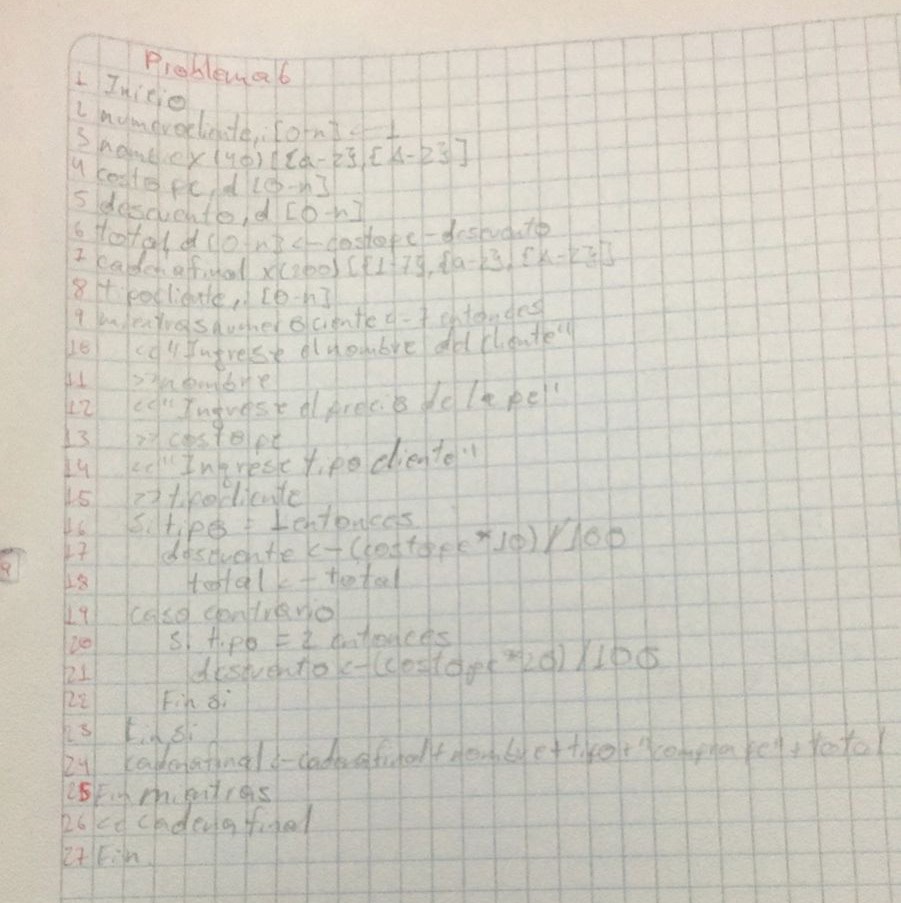 Problema 6
1 Inicio
2 numerocliente, i [0-n] <- 1
3 nombre x (40) [{a-z}, {A-Z}]
4 costopc, d [0-n]
5 descuento, d [0-n]
6 total d [0-n] <- costopc - descuento
7 cadenafinal x(200) [{1-7}, {a-z}, {A-Z}]
8 tipocliente, i [0-n]
9 mientras numerociente <- 7 entonces
10 << "Ingrese el nombre del cliente"
11 >> nombre
12 << "Ingrese el precio de la pc"
13 >> costopc
14 << "Ingrese tipo cliente"
15 >> tipocliente
16 Si tipo = 1 entonces
17 descuento <- (costopc * 10) / 100
18 total <- total
19 caso contrario
20 Si tipo = 2 entonces
21 descuento <- (costopc * 20) / 100
22 Fin si
23 Fin si
24 cadenafinal <- cadenafinal + nombre + tipo + "compra pc" + total
25 Fin mientras
26 << cadena final
27 Fin